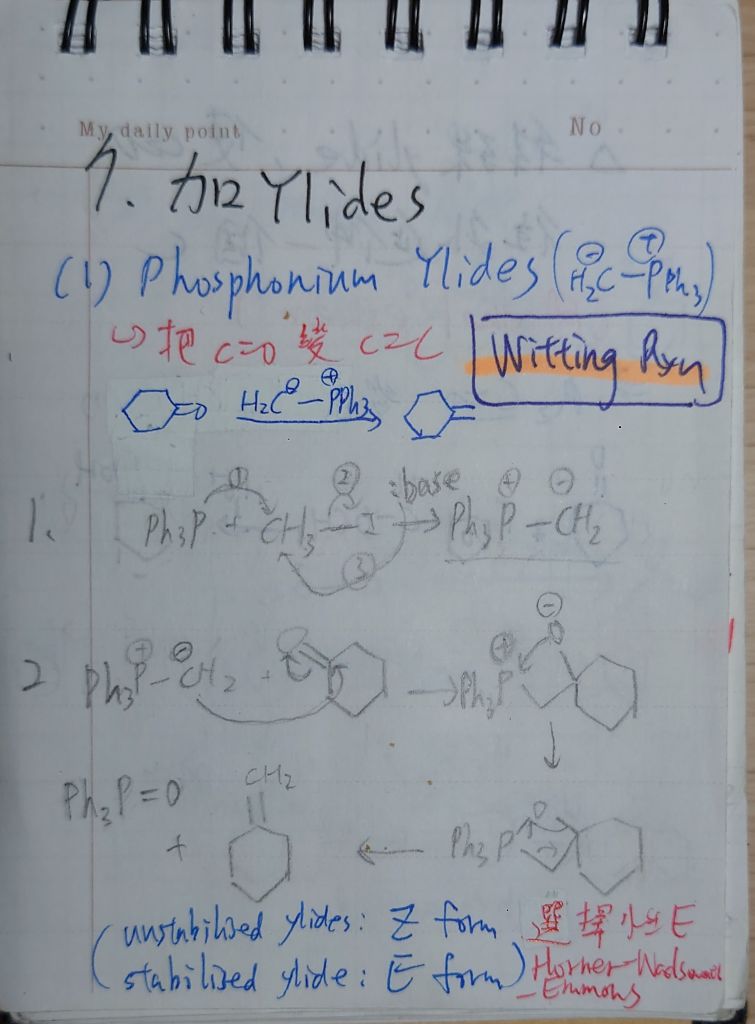 My daily point No
7. 加 Ylides
(1) Phosphonium Ylides (H₂C⊖—P⊕Ph₃)
↳ 把 C=O 變 C=C
Witting Rxn
O H₂C⊖—P⊕Ph₃
1. Ph₃P + CH₃—I :base → Ph₃P⊕—CH₂⊖
① ② ③
2 Ph₃P⊕—CH₂⊖ + O → Ph₃P⊕ O⊖
Ph₃P=O + CH₂ ← Ph₃P O
(unstabilized ylides: Z form
stabilized ylide: E form)
選擇性E
Horner-Wadsworth
-Emmons